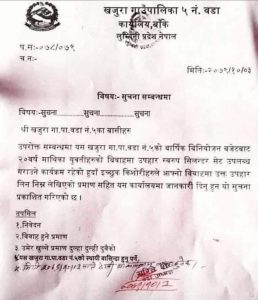 खजुरा गाउँपालिका ५ नं. वडा
कार्यालय, बाँके
लुम्बिनी प्रदेश नेपाल
प.स:-०७८/०७९
च.न:-
मिति:-२०७८/१०/०३
विषय:- सूचना सम्बन्धमा
विषय:- सुचना सुचना सुचना
श्री खजुरा गा.पा.वडा नं.५का बासीहरु
उपरोक्त सम्बन्धमा यस खजुरा गा.पा.वडा नं.५को बार्षिक बिनियोजन बजेटबाट
२०वर्ष माथिका युवतीहरुको विवाहमा उपहार स्वरुप सिलन्डर सेट उपलब्ध
गराउने कार्यक्रम रहेको हुदाँ इच्छुक किशोरीहरुले आफ्नो विवाहमा उक्त उपहार
लिन निम्न लेखिएको प्रमाण सहित यस कार्यालयमा जानकारी दिनु हुन यो सुचना
प्रकाशित गरिएको छ ।
तपसिल
१.निवेदन
२.विवाह हुने प्रमाण
३.उमेर खुल्ने प्रमाण दुल्हा दुल्ही दुबैको
४.यस खजुरा गा.पा.वडा नं.५को स्थायी बासिन्दा हुनु पर्ने,